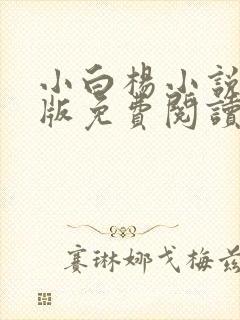 小白楊小說
版免費閱讀
赛琳娜戈梅兹